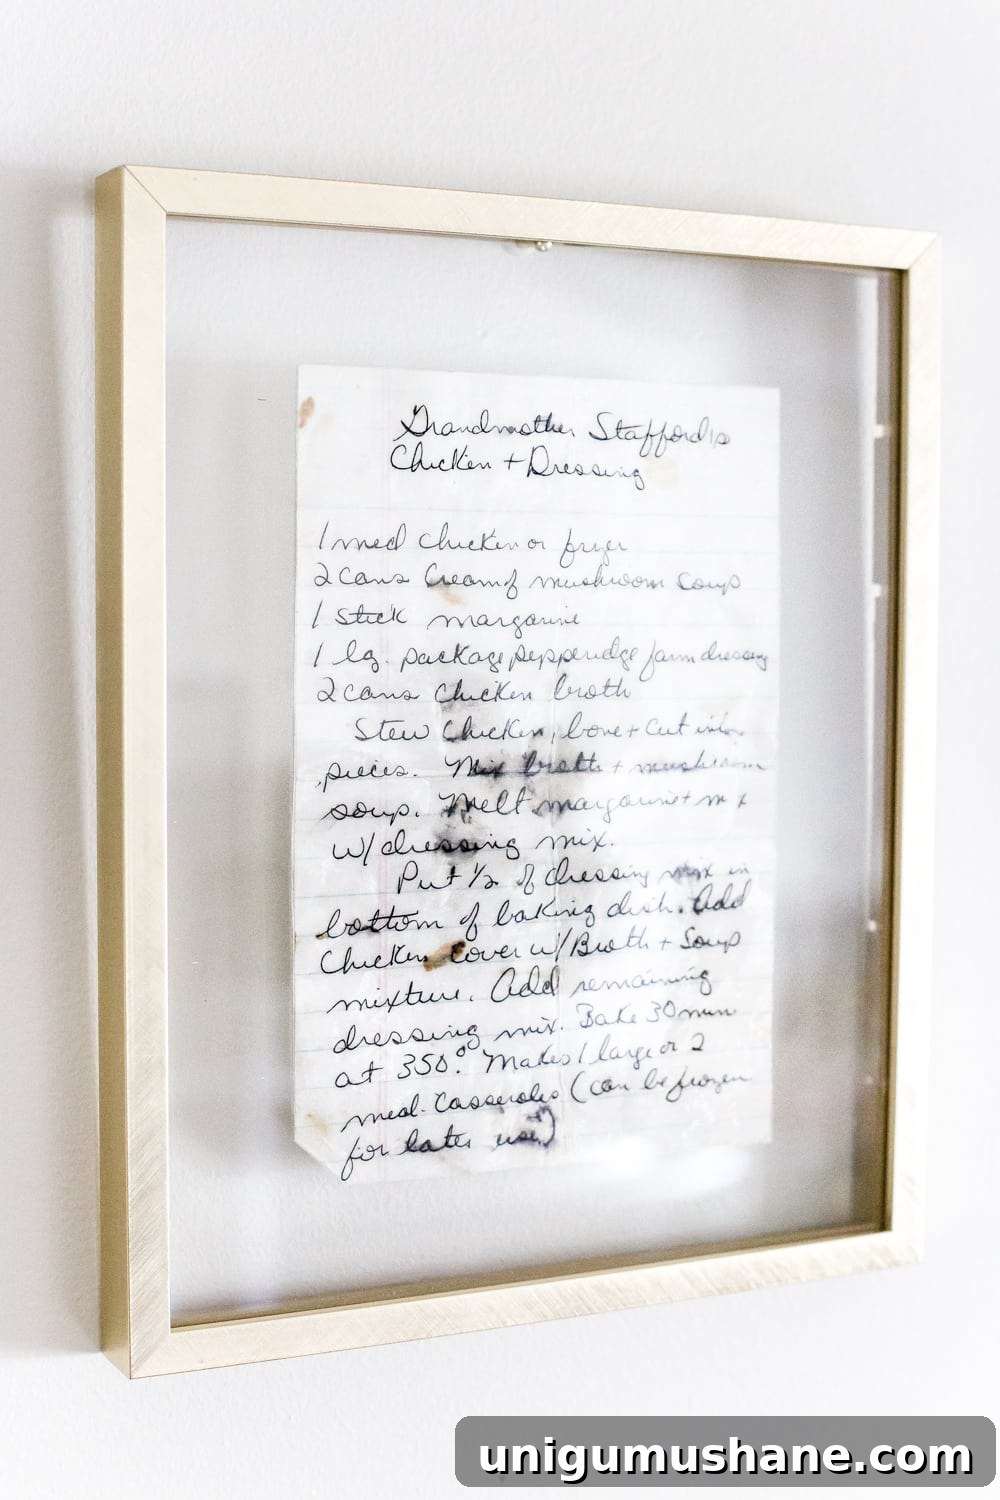 Grandmother Stafford's
Chicken + Dressing
1 med chicken or fryer
2 cans Cream of mushroom soup
1 stick margarine
1 lg. package pepperidge farm dressing
2 cans chicken broth
Stew Chicken, bone + cut into
pieces. Mix broth + mushroom
soup. Melt margarine + mix
w/ dressing mix.
Put 1/2 of dressing mix in
bottom of baking dish. Add
Chicken cover w/ Broth + Soup
mixture. Add remaining
dressing mix. Bake 30 min
at 350°. Makes 1 large or 2
med. Casseroles (can be frozen
for later use)
unigumushane.com